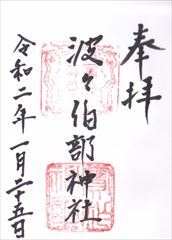 奉拝
波々伯部神社
令和二年一月二十五日